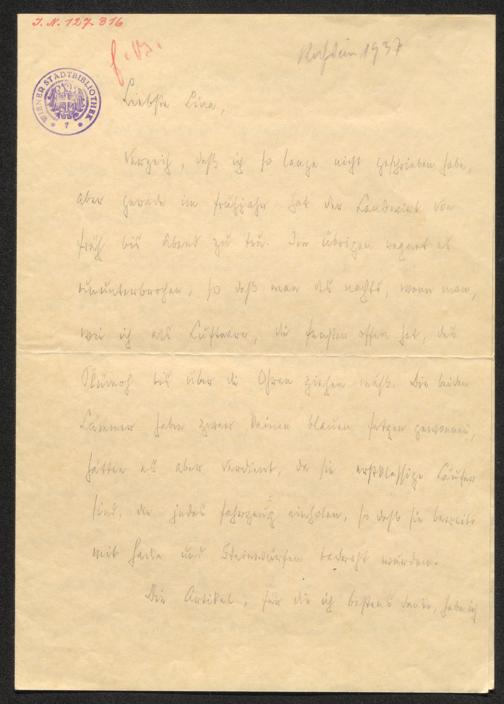 J. N. 127.816
WIENER STADTBIBLIOTHEK
1937
Liebste Lina,
Verzeih, daß ich so lange nicht geschrieben habe,
aber gerade im Frühjahr hat der Landwirt von
früh bis Abend zu tun. Im übrigen regnet es
ununterbrochen, so daß man des nachts, wenn man,
wie ich als Luftnarr, die Fenster offen hat, das
Plumeau bis über die Ohren ziehen muß. Die beiden
Lämmer haben zwar keinen blauen Fetzen gewonnen,
hätten es aber verdient, da sie erstklassige Läufer
sind, die jedes Fahrzeug einholen, so daß sie bereits
mit und Steinwürfen bedroht wurden.
Die Artikel, für die ich bestens danke, habe ich